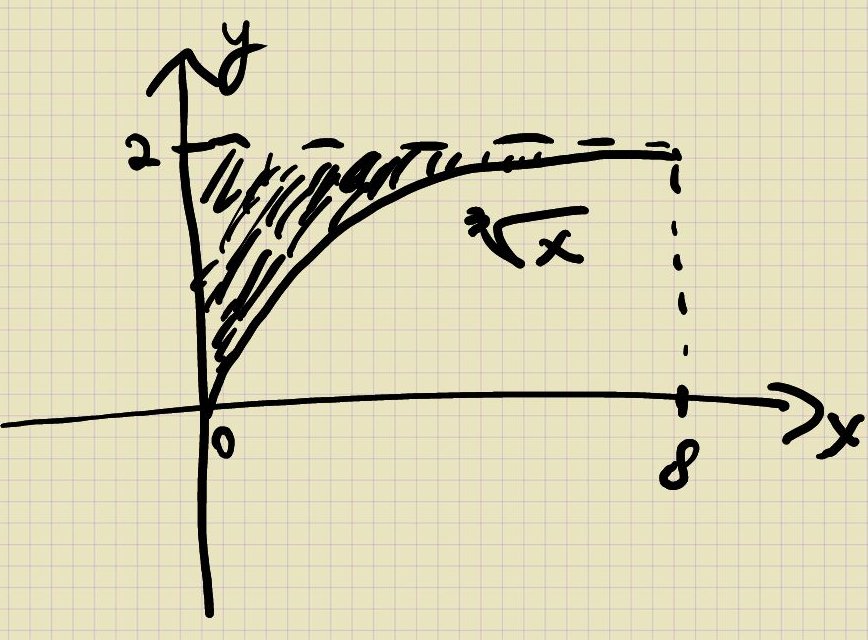 y
2
∛x
0
8
x